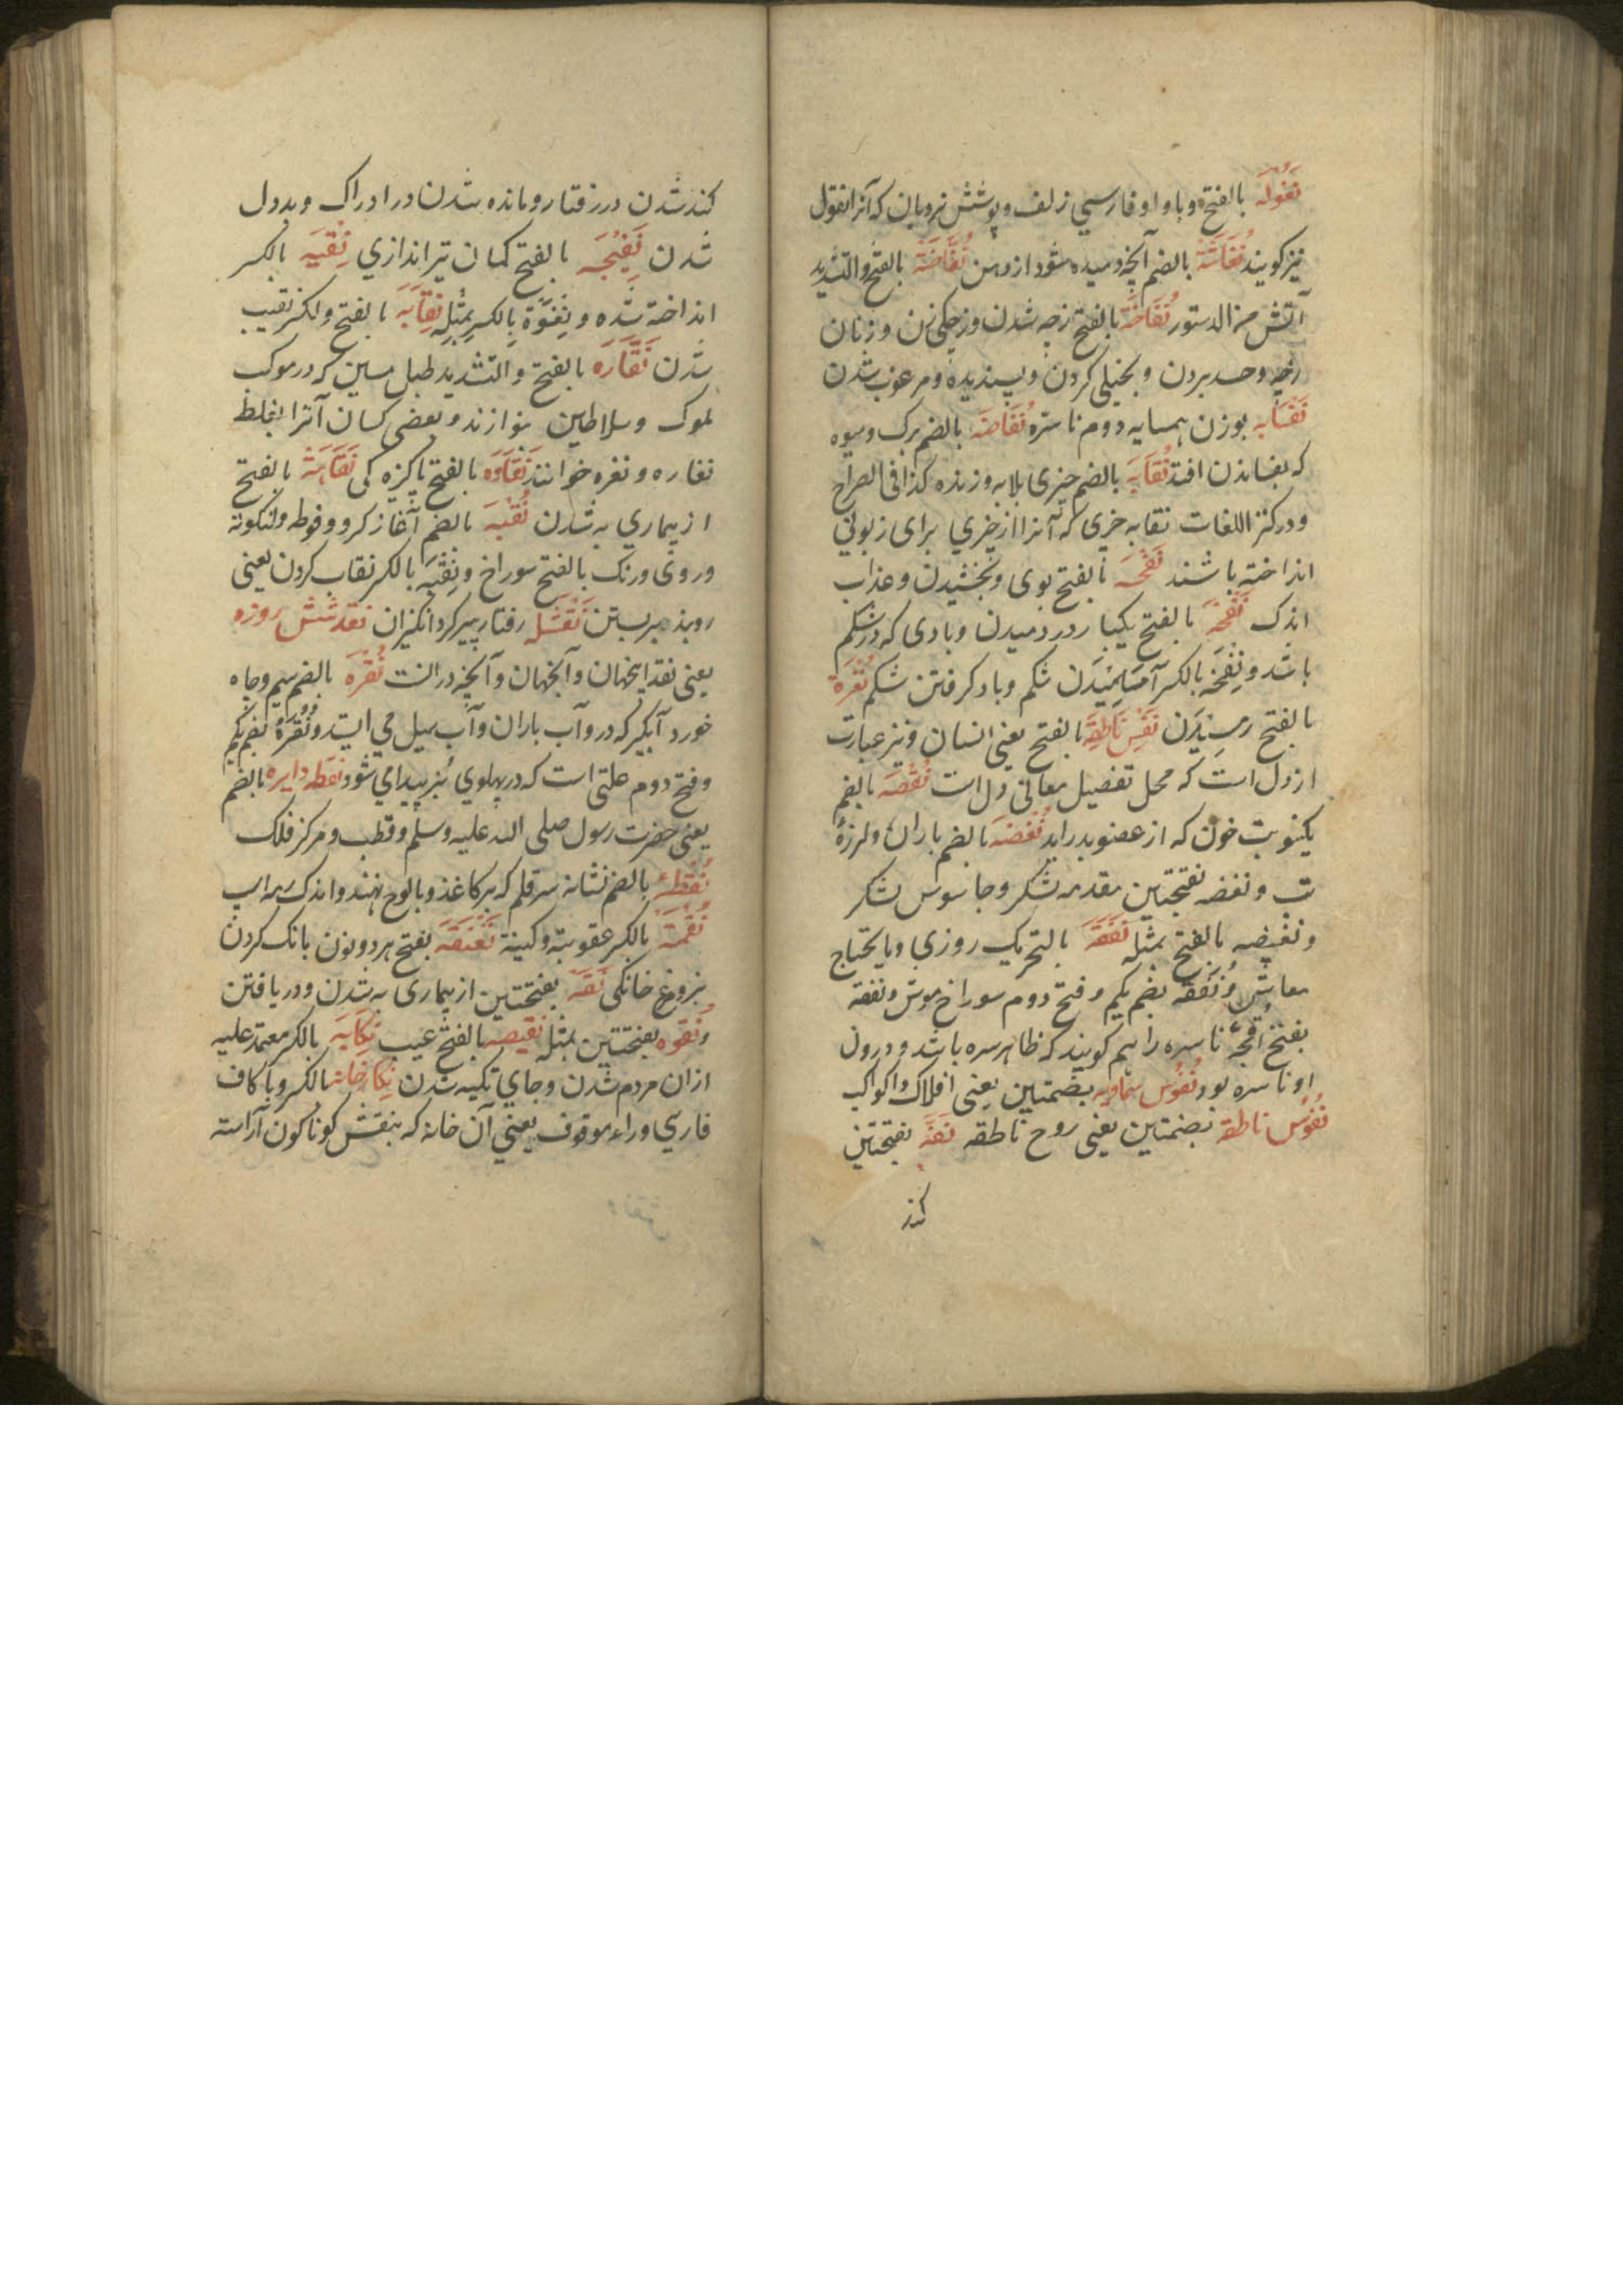 نغوله بالفتح و با واو فارسي زلف و پوشش نردبان که آنرا نغول
نیز کویند نفاثة بالضم آنچه دمیده شود از دهن نفاضة بالفتح والتشدید
آتش من الدستور نفاخة بالفتح زچه شدن و زچکی زن و زنان
زچه و حسد بردن و بخیلی کردن و پسندیده و مرغوب شدن
نفسایه بوزن همسایه دوم ناستره نفاضه بالضم برک و میوه
که بفشاندن افتد نقایه بالضم چیزی بلایه و زنده کذا فی الصراح
و در کنز اللغات نقایه چیزی که آنرا از چیزي برای زبونی
انداخته باشند نفحه بالفتح بوی و بخشیدن و عذاب
اندک نفخه بالفتح یکبار در دمیدن و بادی که در شکم
باشد و نفخه بالکسر آماسیدن شکم و باد کرفتن شکم نفرة
بالفتح رمیدن نفس ناطقه بالفتح یعنی انسان و نیز عبارت
از دل است که محل تفصیل معانی دل است نفصه بالضم
یکنوبت خون که از عضو بدر اید نفضه بالضم باران و لرزهٔ
تب و نفضه بفتحتین مقدمه لشکر و جاسوس لشکر
و نفیضه بالفتح بمثله نفقه بالتحریک روزي و ما یحتاج
معاش و نفقه بضم یکم و فتح دوم سوراخ موش و نفقه
بفتح اقچهٔ ناسره را هم کویند که ظاهر سره باشد و درون
او ناسره بود نفوس سماویه بضمتین یعنی افلاک و کواکب
نفوس ناطقه بضمتین یعنی روح ناطقه نفه بفتحتین
کند
کند شدن در رفتار و مانده شدن در ادراک و بددل
شدن نفیجه بالفتح کمان تیر اندازي نفیه بالکسر
انداخته شده و نفوة بالکسر بمثله نقابة بالفتح والکسر نقیب
شدن نقاره بالفتح والتشدید طبل مسین که در موکب
ملوک و سلاطین نوازند و بعضی کسان آنرا بغلط
نغاره و نغره خوانند نقاوه بالفتح پاکیزه کی نقاهة بالفتح
از بیماري به شدن نقبه بالضم آغاز کرو و فوطه و لنکوته
و روی و رنک بالفتح سوراخ و نقبه بالکسر نقاب کردن یعنی
روبند بر بستن نقثله رفتار پیر کرد انکیزان نقد شش روزه
یعنی نقد اینجهان و آنجهان و آنچه در انست نقره بالضم سیم و چاه
خورد آبکیر که درو آب باران و آب سیل می ایستد و نقره بضم یکم
و فتح دوم علتی است که در پهلوي بز پیدا می شود نقطه دایره بالضم
یعنی حضرت رسول صلی الله علیه وسلم و قطب و مرکز فلک
نقطه بالضم نشانه سر قلم که بر کاغذ و بالوح نهند و اندک سیراب
نقمة بالکسر عقوبة و کینة نقنقه بفتح هر دو نون بانک کردن
بز و مرغ خانکی نقه بفتحتین از بیماری به شدن و دریافتن
و نقوه بفتحتین بمثله نقیصه بالفتح عیب نکایه بالکسر معتمد علیه
ازان مردم شدن و جاي تکیه شدن نکارخانه بالکسر و با کاف
فارسي و راء موقوف یعني آن خانه که بنقش کوناکون آراسته